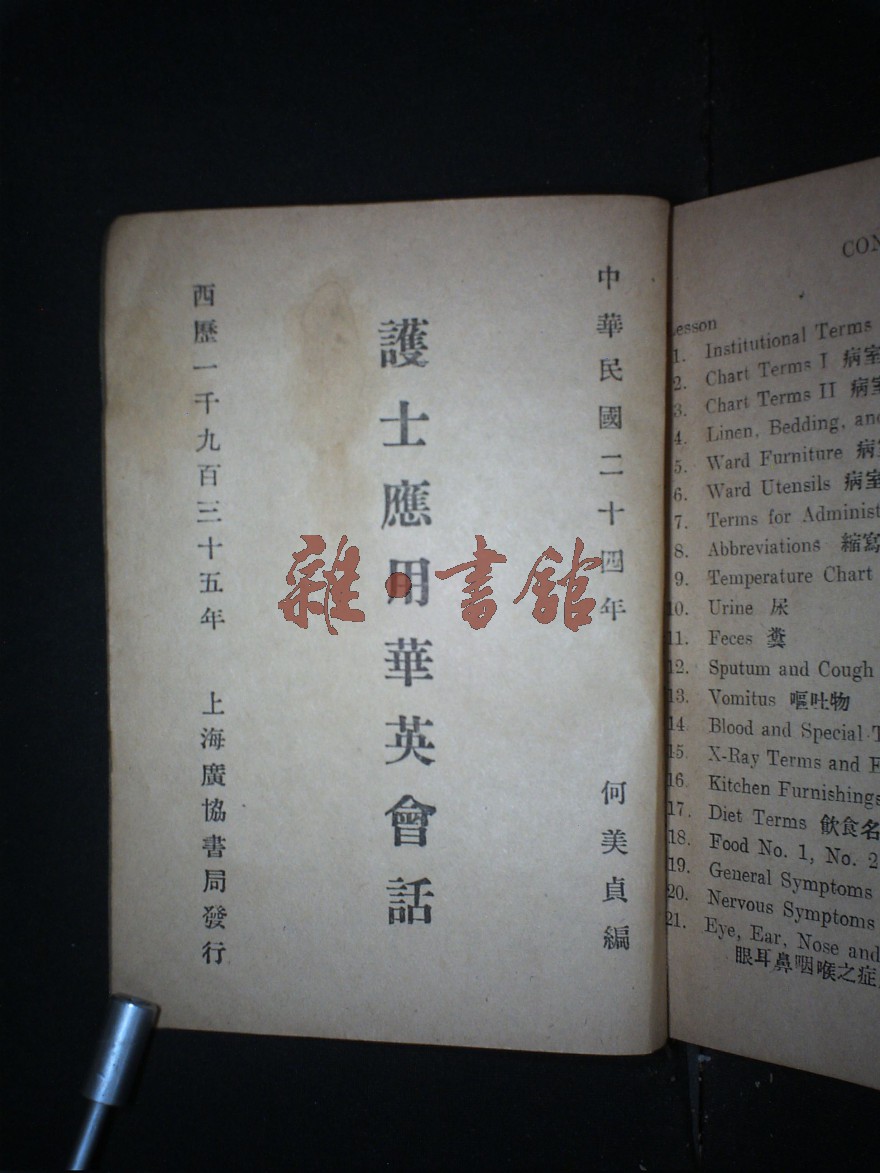 中華民國二十四年 何美貞編
護士應用華英會話
西歷一千九百三十五年 上海廣協書局發行
雜·書館
Lesson
1. Institutional Terms
2. Chart Terms I 病室
3. Chart Terms II 病室
4. Linen, Bedding, and
5. Ward Furniture 病室
6. Ward Utensils 病室
7. Terms for
8. Abbreviations 縮寫
9. Temperature Chart
10. Urine 尿
11. Feces 糞
12. Sputum and Cough
13. Vomitus 嘔吐物
14. Blood and Special
15. X-Ray Terms and
16. Kitchen Furnishings
17. Diet Terms 飲食名
18. Food No. 1, No. 2
19. General Symptoms
20. Nervous Symptoms
21. Eye, Ear, Nose and
眼耳鼻咽喉之症